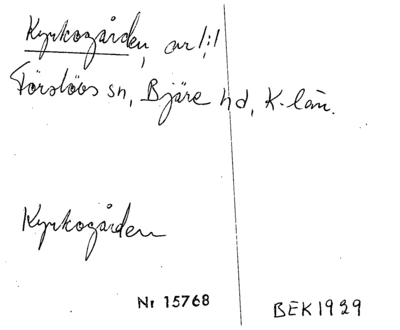 Kyrkogården, ar 1:1
Förslövs sn, Bjäre hd, K-län.
Kyrkogården
Nr 15768
BEK 1929